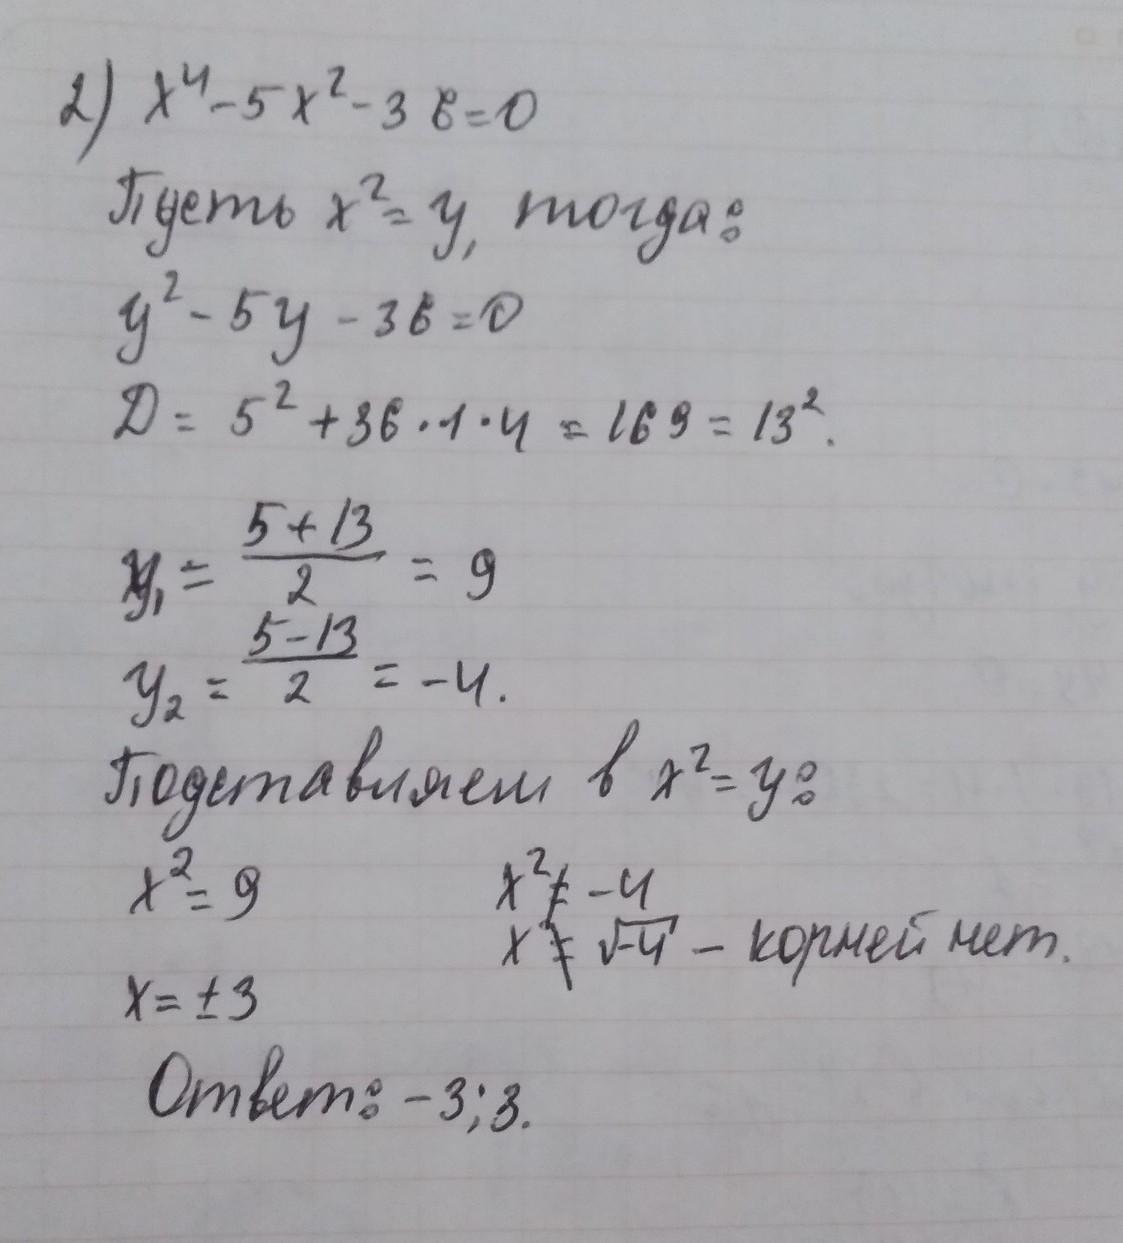 2) x⁴-5x²-36=0
Пусть x²=y, тогда:
y²-5y-36=0
D=5²+36·1·4=169=13².
y₁=(5+13)/2=9
y₂=(5-13)/2=-4.
Подставляем в x²=y:
x²=9 x²≠-4
x≠√-4 - корней нет.
x=±3
Ответ: -3;3.